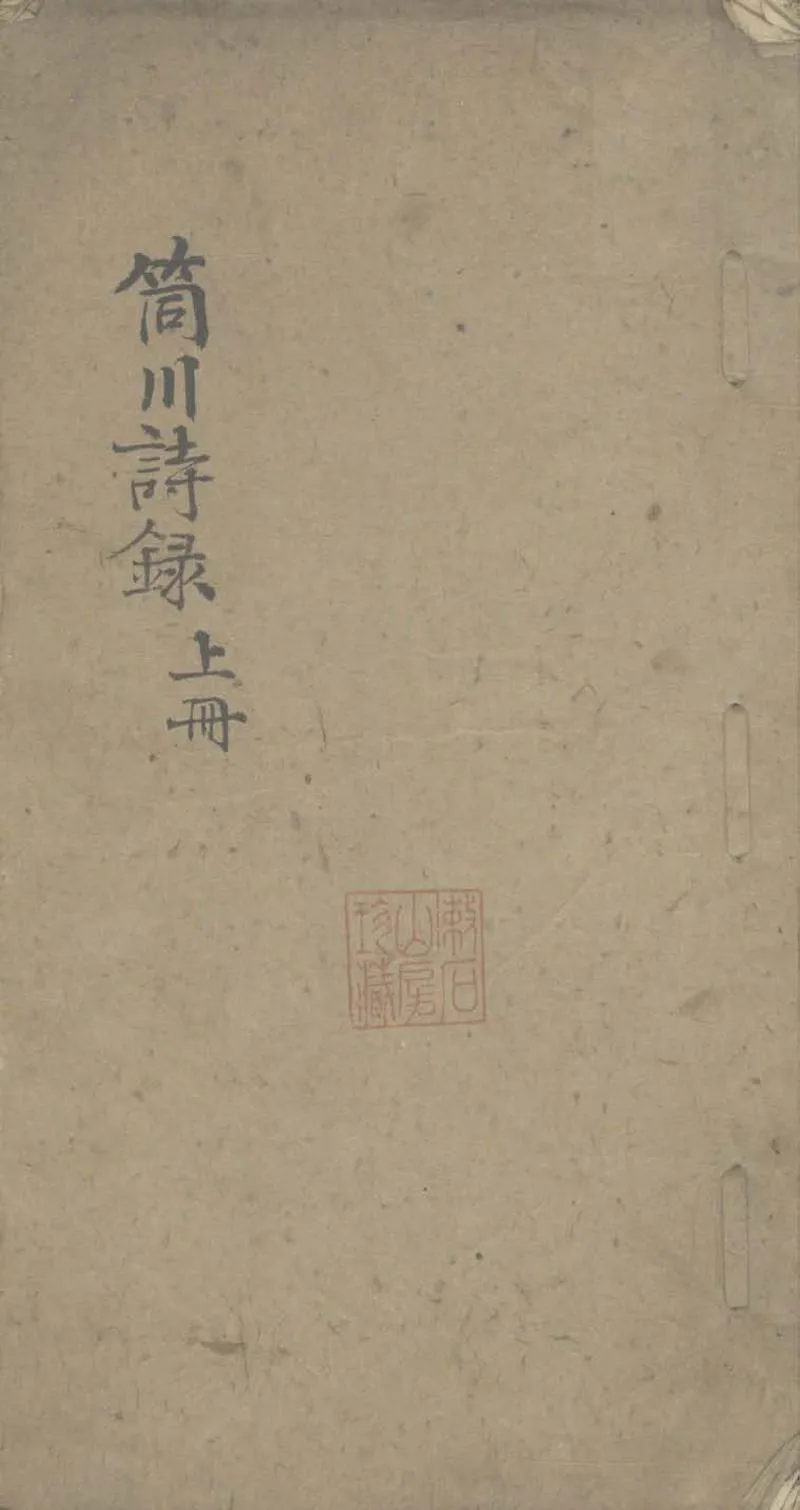 筒川詩録
上冊
漱石
山房
珍藏